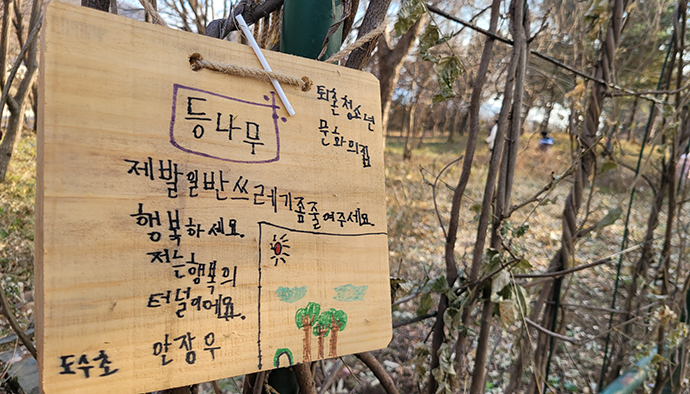 등나무
퇴촌청소년
문화의집
제발일반쓰레기좀줄여주세요
행복하세요.
저는행복의
터널이에요.
도수초 안장우